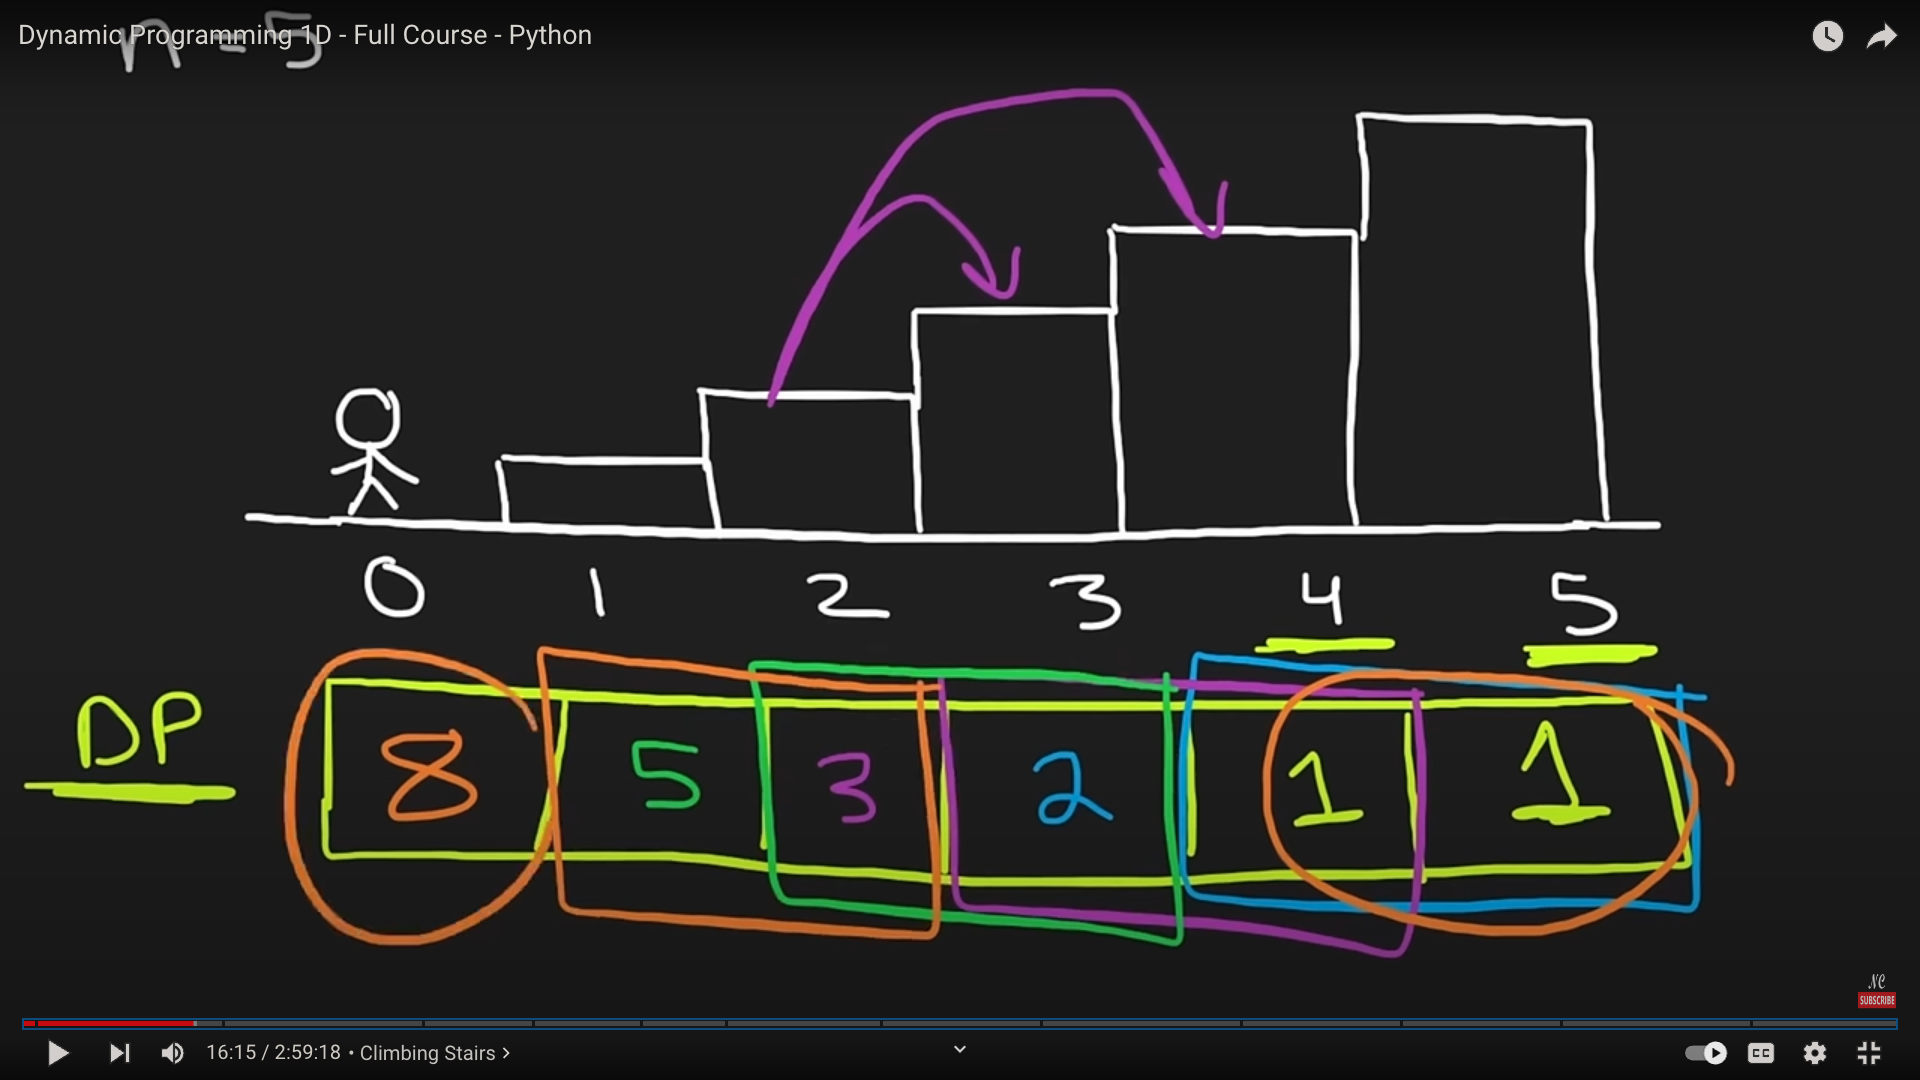 Dynamic Programming 1D - Full Course - Python
n = 5
0 1 2 3 4 5
DP
8 5 3 2 1 1
NC
SUBSCRIBE
16:15 / 2:59:18 • Climbing Stairs >
CC